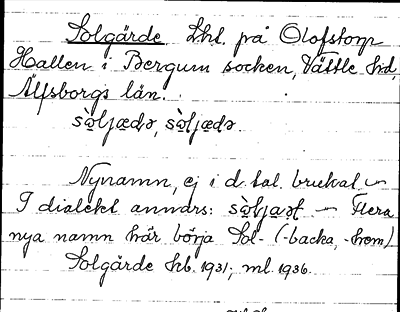 Solgärde Lhl. på Olofstorp
Hallen i Bergum socken, Vättle hd,
Älfsborgs län.
sò̤ljædə, sò̤ljædə.
Nynamn, ej i d. tal. brukat. —
I dialekt annars: — Flera
nya namn här börja Sol- (-backa, -hem)
Solgärde hb. 1931; ml. 1936.